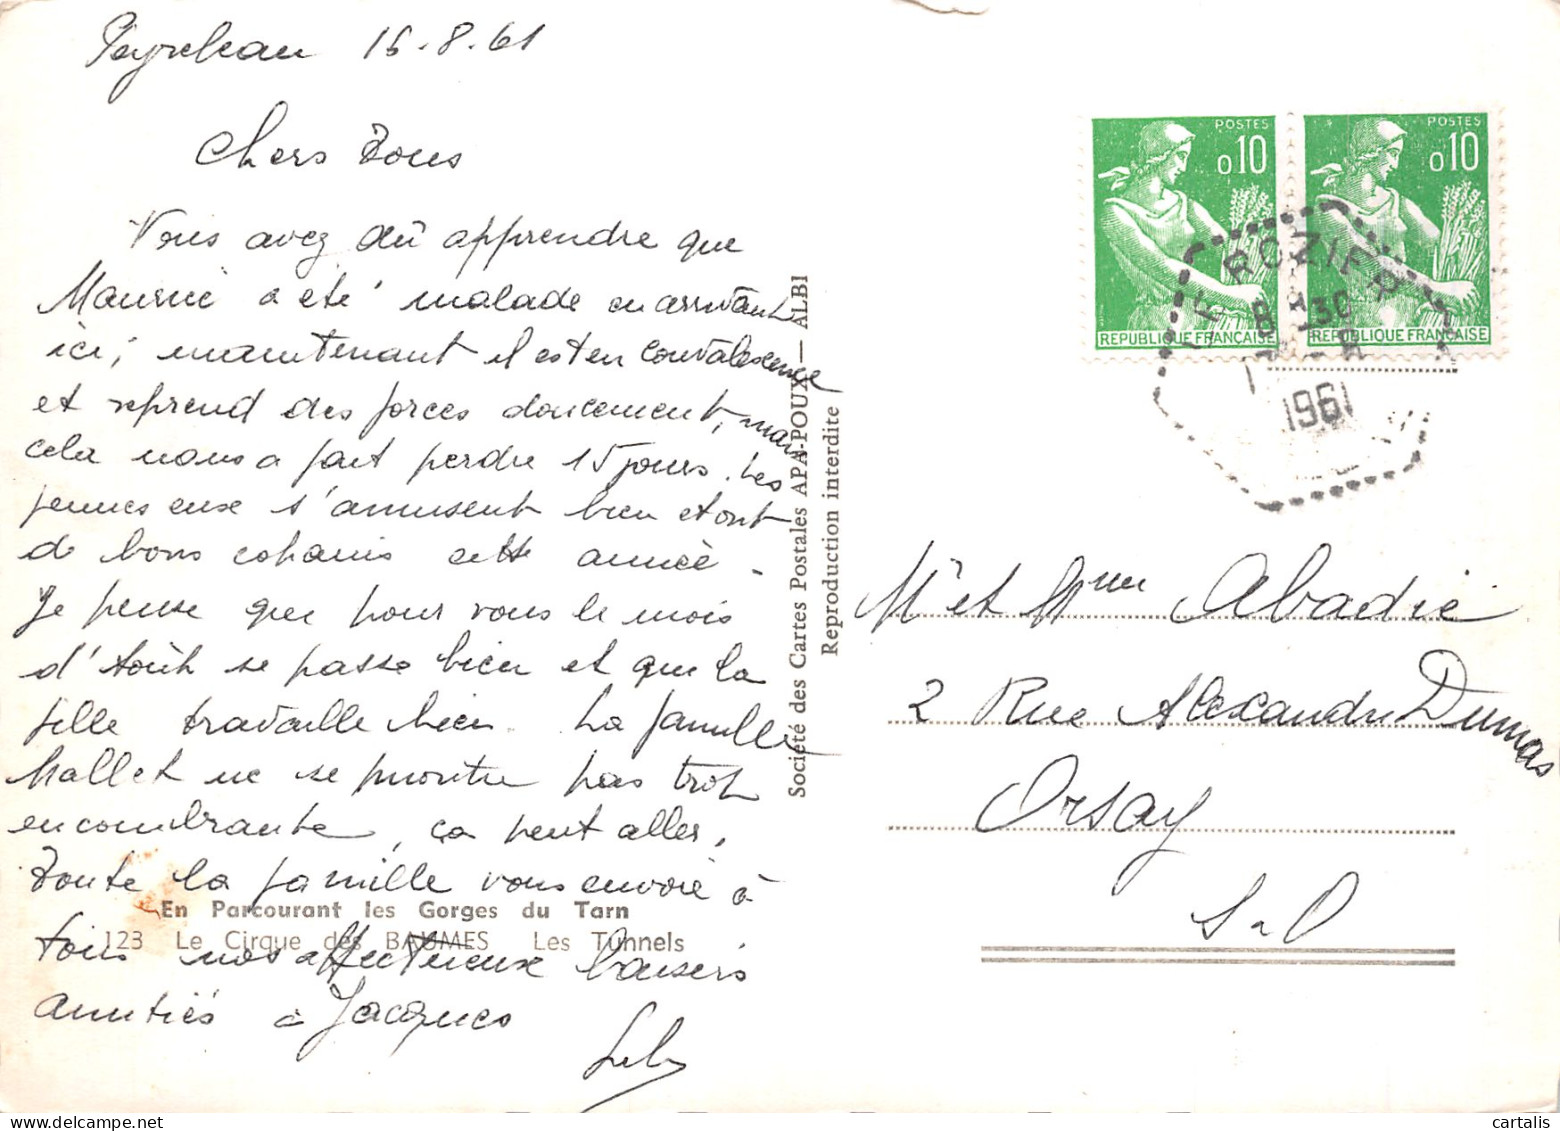 Peyreleau 16.8.61
Chers Tous
Vous avez dû apprendre que
Maurice a été malade en arrivant
ici, maintenant il est en convalescence
et reprend des forces doucement, mais
cela nous a fait perdre 15 jours. Les
jeunes eux s'amusent bien et ont
de bons copains cette année -
Je pense que pour vous le mois
d'Août se passe bien et que la
fille travaille bien. La famille
Mallet ne se montre pas trop
encombrante, ça peut aller.
Toute la famille vous envoie à
tous nos affectueux baisers
amitiés à Jacques
En Parcourant les Gorges du Tarn
123 Le Cirque des BAUMES Les Tunnels
Société des Cartes Postales APA-POUX — ALBI
Reproduction interdite
POSTES
0,10
REPUBLIQUE FRANÇAISE
POSTES
0,10
REPUBLIQUE FRANÇAISE
LE ROZIER
8 H 30
1961
Mr et Mme Abadie
2 Rue Alexandre Dumas
Orsay
S-O
cartalis